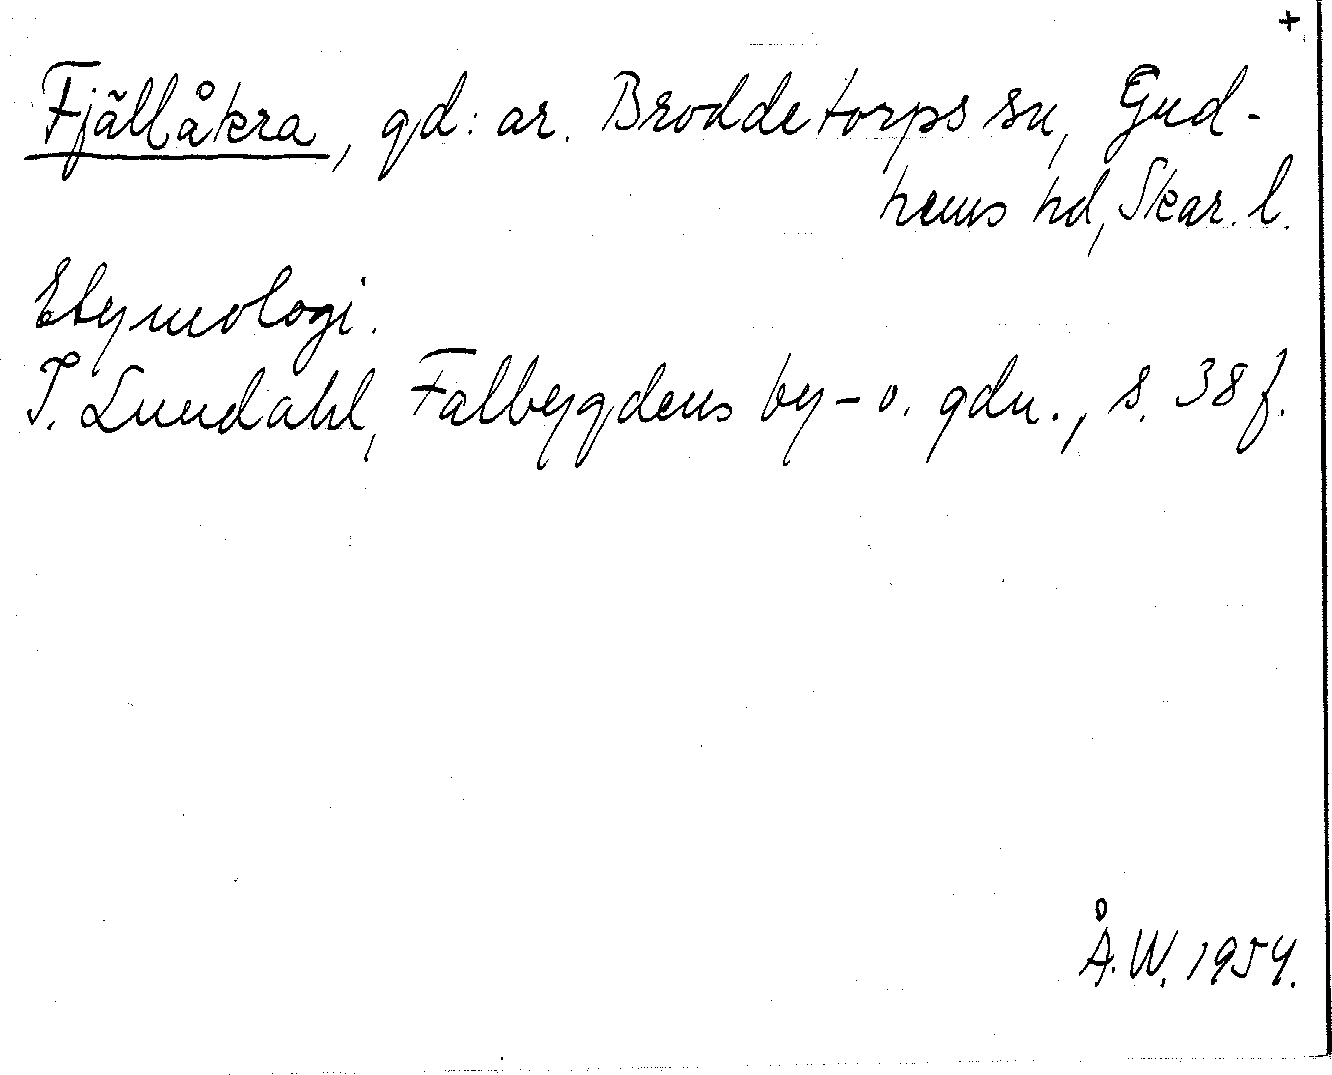 +
Fjällåkra, gd: ar. Broddetorps sn, Gud-
hems hd, Skar. l.
Etymologi.
I. Lundahl, Falbygdens by- o. gdn., s. 38 f.
Å.W. 1954.